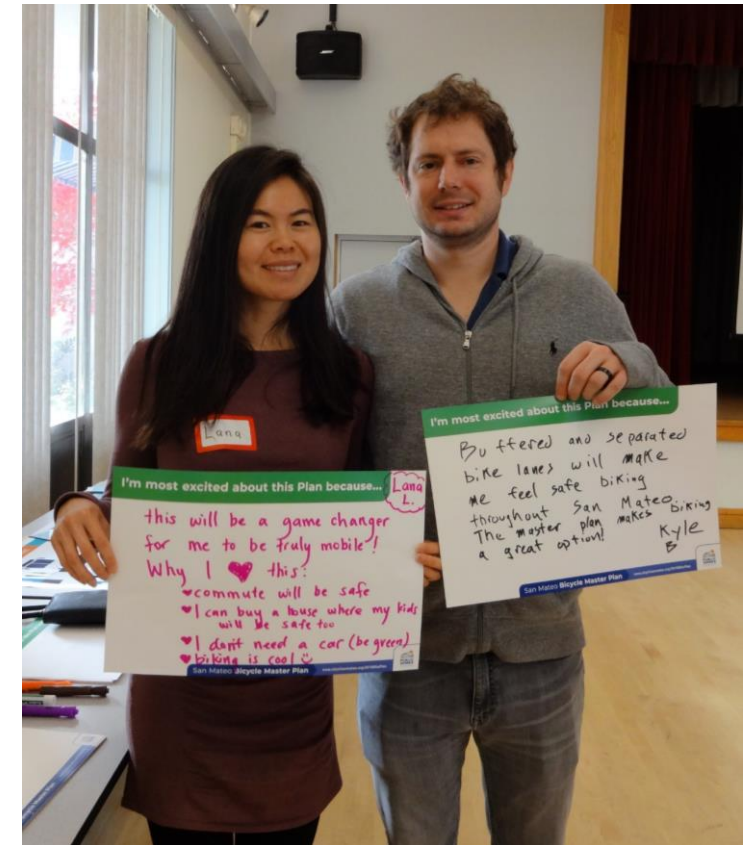 Lana
I'm most excited about this Plan because...
Lana
L.
this will be a game changer
for me to be truly mobile!
Why I ♥ this:
♥ commute will be safe
♥ I can buy a house where my kids
will be safe too
♥ I don't need a car (be green)
♥ biking is cool ☺
San Mateo Bicycle Master Plan
I'm most excited about this Plan because...
Buffered and separated
bike lanes will make
me feel safe biking
throughout San Mateo.
The master plan makes biking
a great option!
Kyle
B
San Mateo Bicycle Master Plan